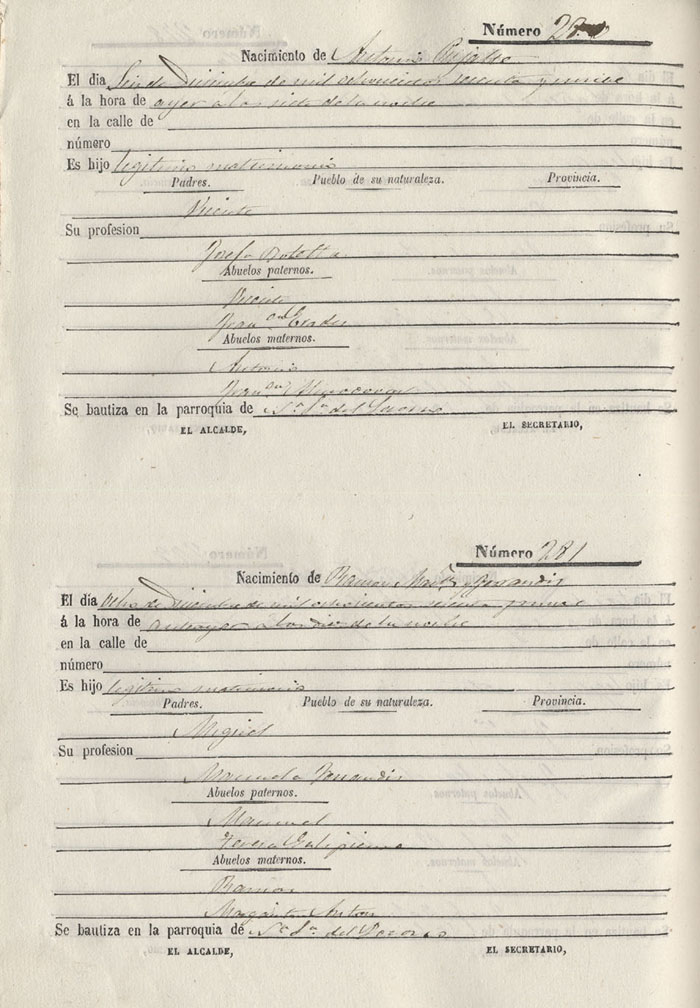 Número 280
Nacimiento de Antonio
El día Seis de Diciembre de mil ochocientos sesenta y nueve
á la hora de ayer a las siete de la noche
en la calle de
número
Es hijo legitimo matrimonio
Padres. Pueblo de su naturaleza. Provincia.
Vicente
Su profesion
Josefa Botella
Abuelos paternos.
Vicente
Franca
Abuelos maternos.
Antonio
Franca
Se bautiza en la parroquia de Na. Sa. del Socorro
EL ALCALDE, EL SECRETARIO,
Número 281
Nacimiento de Ramon Ferrandis
El día ocho de Diciembre de mil ochocientos sesenta y nueve
á la hora de anteayer a las de la noche
en la calle de
número
Es hijo legitimo matrimonio
Padres. Pueblo de su naturaleza. Provincia.
Miguel
Su profesion
Manuela Ferrandis
Abuelos paternos.
Manuel
Teresa Galipienso
Abuelos maternos.
Ramon
Margarita Anton
Se bautiza en la parroquia de Na. Sa. del Socorro
EL ALCALDE, EL SECRETARIO,